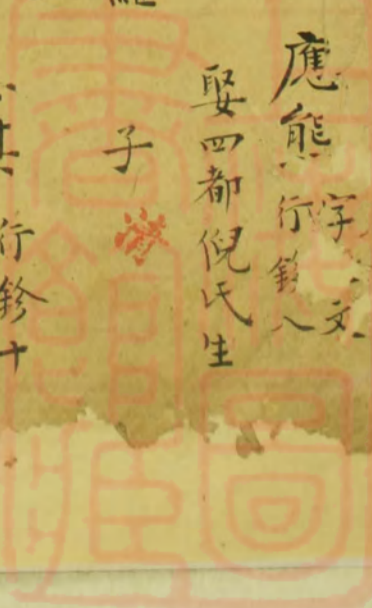 應熊字文
行鈐八
娶四都倪氏生
子
行鈐十